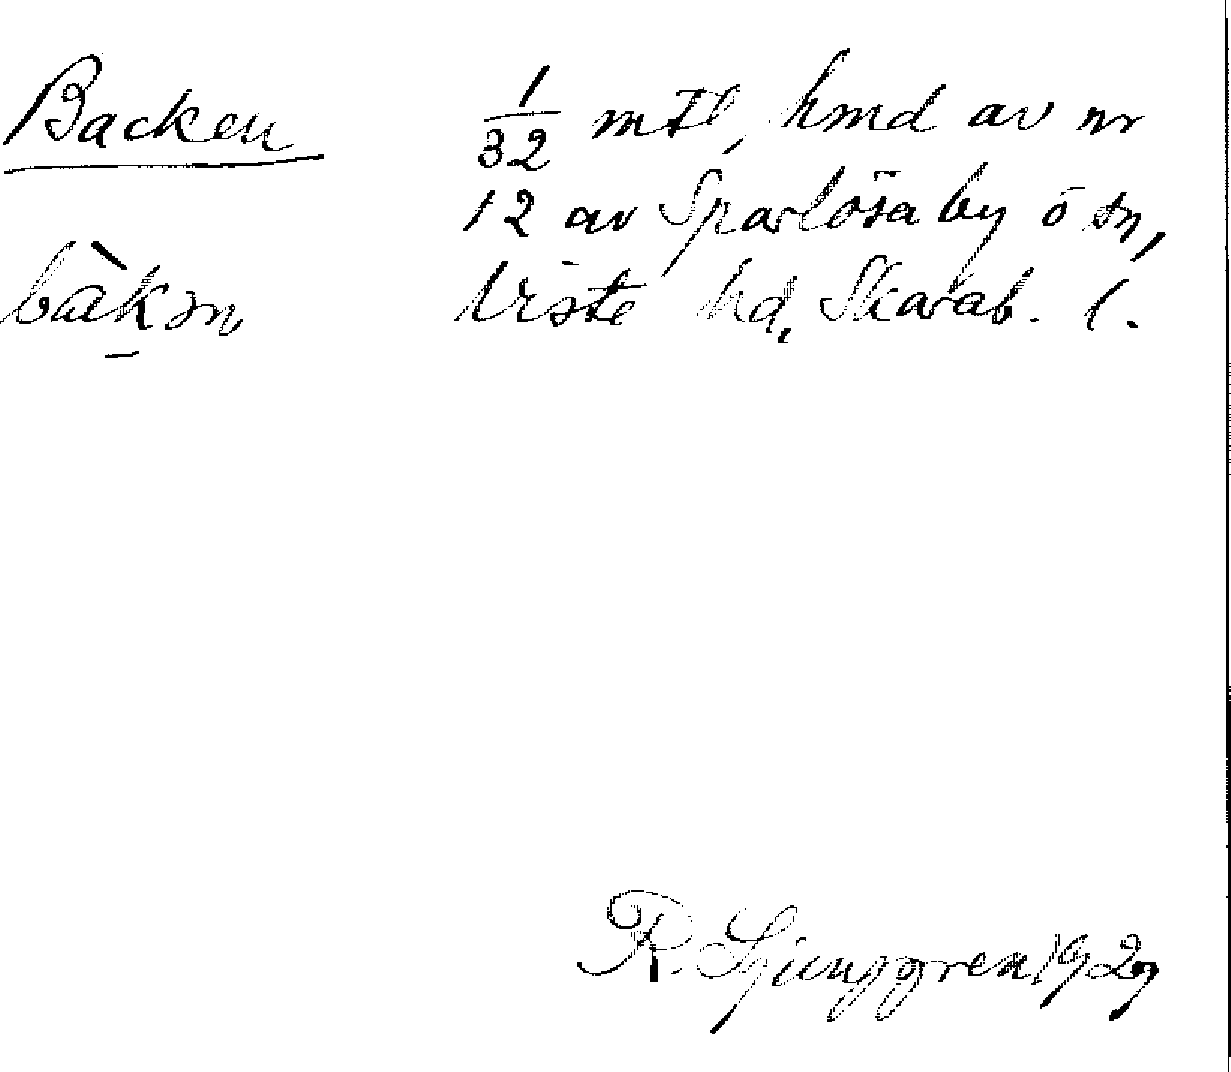 Backen
1/32 mtl, hmd av nr
12 av Sparlösa by o sn,
Viste hd, Skarab. l.
bàkən
R. Ljunggren 1929